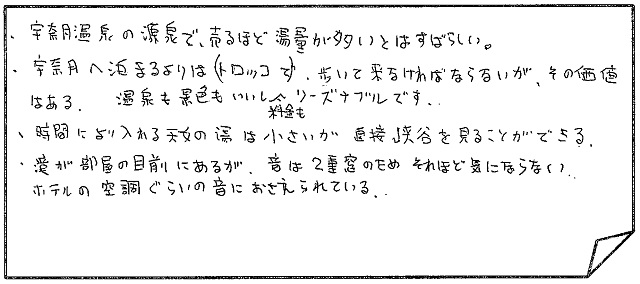 ・宇奈月温泉の源泉で、売るほど湯量が多いとはすばらしい。
・宇奈月へ泊まるよりは(トロッコで)、歩いて来なければならないが、その価値
はある。 温泉も景色もいいし、料金もリーズナブルです。
・時間により入れる天女の湯は小さいが 直接峡谷を見ることができる。
・滝が部屋の目前にあるが、音は2重窓のためそれほど気にならない。
ホテルの空調ぐらいの音におさえられている。